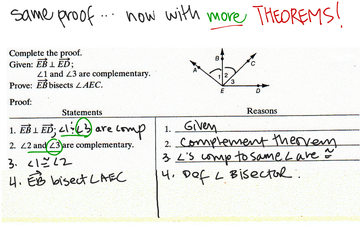 same proof... now with more THEOREMS!
Complete the proof.
Given: EB ⊥ ED;
∠1 and ∠3 are complementary.
Prove: EB bisects ∠AEC.
A
B
C
1
2
3
E
D
Proof:
Statements
Reasons
1. EB ⊥ ED; ∠1 & ∠3 are comp
1. Given
2. ∠2 and ∠3 are complementary.
2. Complement theorem
3. ∠1 ≅ ∠2
3 ∠'s comp to same ∠ are ≅
4. EB bisect ∠AEC
4. Def ∠ Bisector.